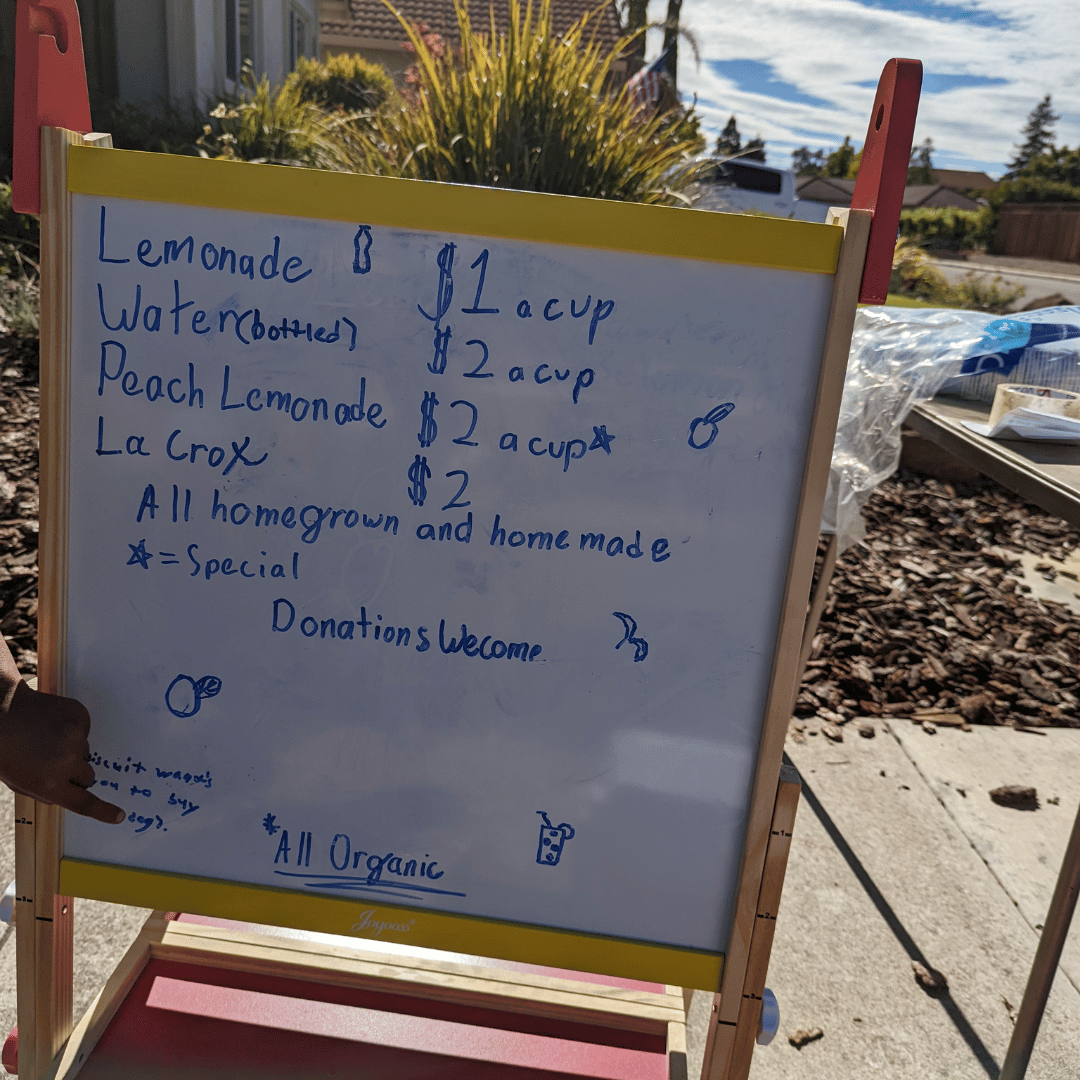 Lemonade $1 a cup
Water (bottled) $2 a cup
Peach Lemonade $2 a cup☆
La Crox $2
All homegrown and homemade
☆=Special
Donations Wecome
to buy
*All Organic
Joyooss